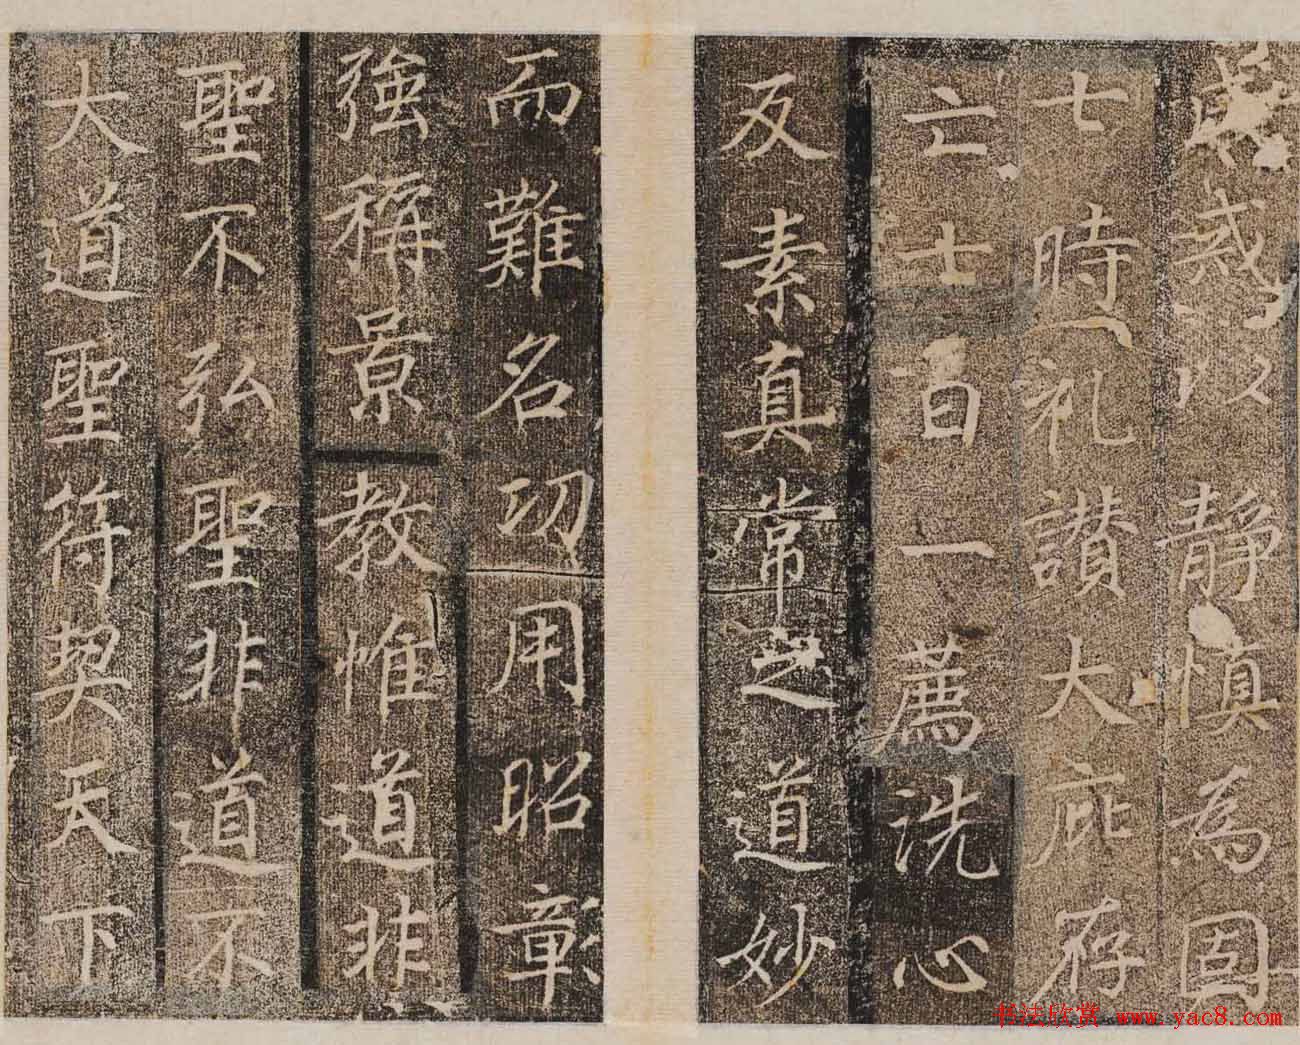 成戒以靜慎為固
七時礼讚大庇存
亡七日一薦洗心
反素真常之道妙
而難名功用昭彰
強稱景教惟道非
聖不弘聖非道不
大道聖符契天下
书法欣赏 www.yac8.com